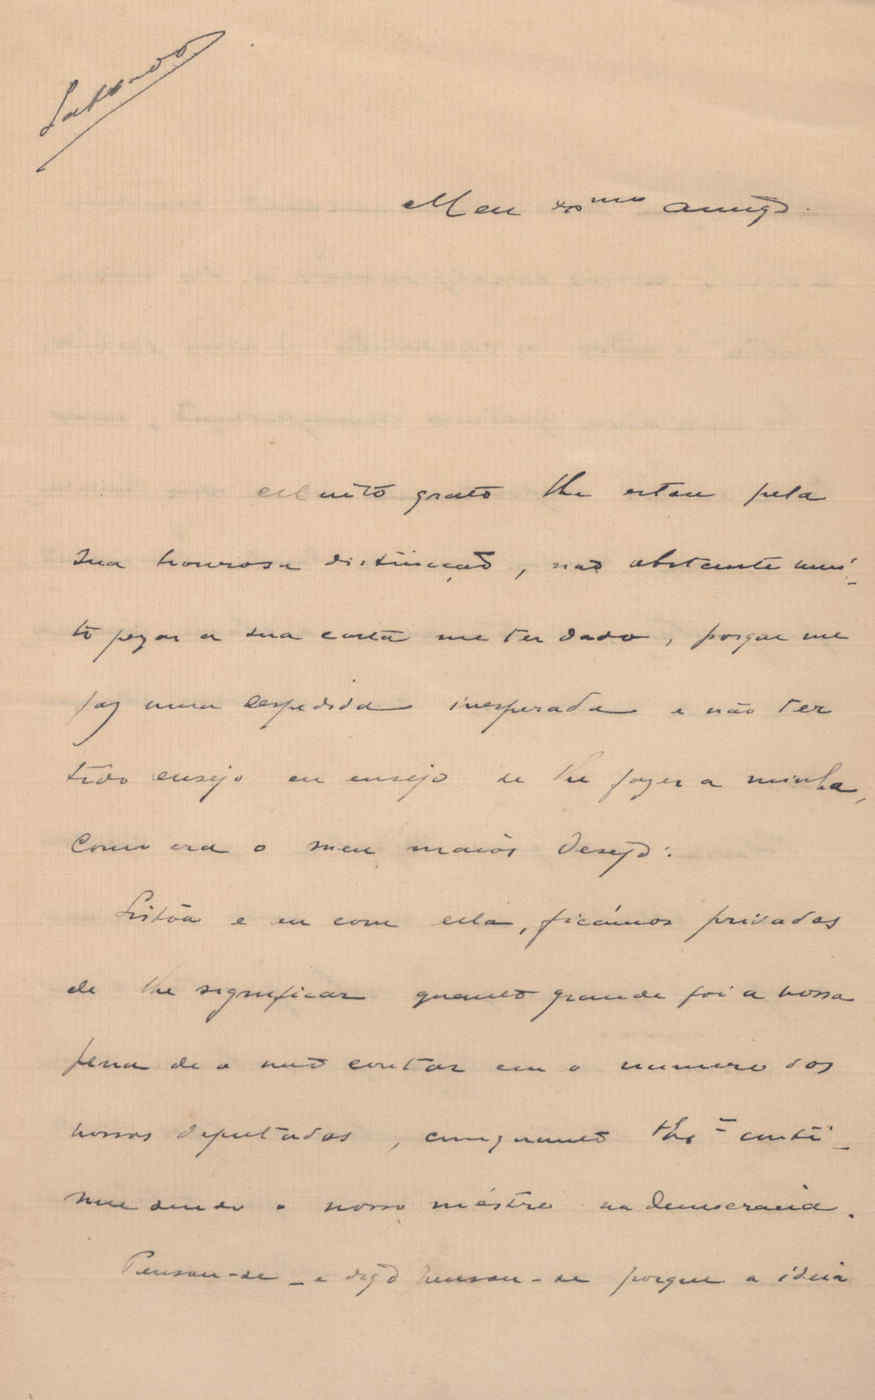 Sabbado
Meu xº mo amigo.
Muito grato lhe estou pela
sua honrosa distincção, não obstante mui-
to pezar a sua carta me ter dado, porque me
faz uma despedida inesperada e não ter
tido ensejo eu ensejo de lhe fazer a minha,
como era o meu maior desejo.
Lisbôa e eu com ella, ficámos privados
de lhe significar quanto grande foi a nossa
pena de o não contar em o numero dos
nossos deputados, emquanto conti-
nue sendo o nosso méstre na democracia.
Pensou-se – e digo pensou-se porque a ideia